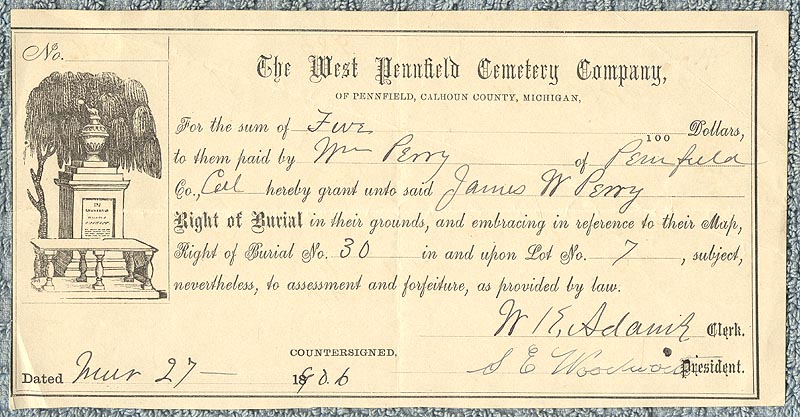 No.
The West Pennfield Cemetery Company,
OF PENNFIELD, CALHOUN COUNTY, MICHIGAN,
For the sum of Five 100 Dollars,
to them paid by Wm Perry of Pennfield
Co., Cal hereby grant unto said James W Perry
Right of Burial in their grounds, and embracing in reference to their Map,
Right of Burial No. 30 in and upon Lot No. 7, subject,
nevertheless, to assessment and forfeiture, as provided by law.
W E Adams Clerk.
COUNTERSIGNED,
S E Woodworth President.
Dated Mar 27 1906